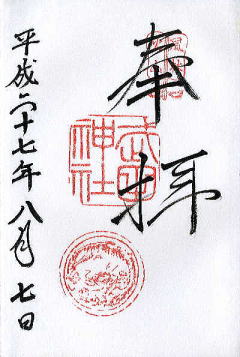 奉拝
武田神社
平成二十七年八月七日